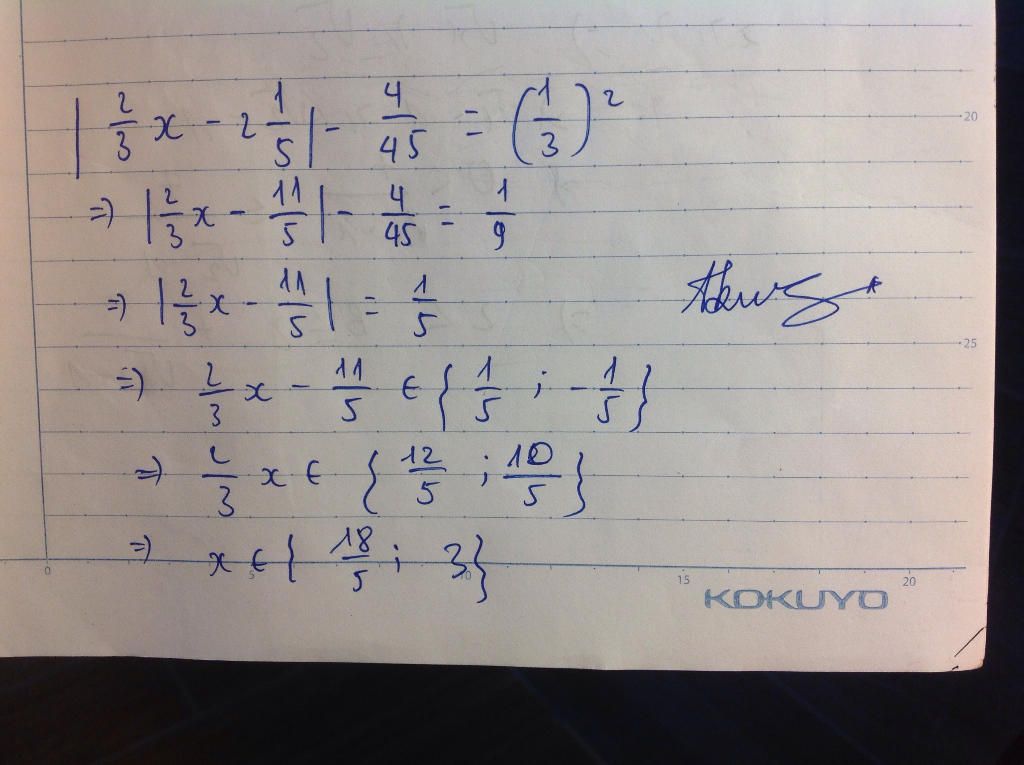 |2/3 x - 2 1/5| - 4/45 = (1/3)²
=> |2/3 x - 11/5| - 4/45 = 1/9
=> |2/3 x - 11/5| = 1/5
=> 2/3 x - 11/5 ∈ {1/5 ; -1/5}
=> 2/3 x ∈ {12/5 ; 10/5}
=> x ∈ {18/5 ; 3}
20
25
0 5 10 15 20
KOKUYO